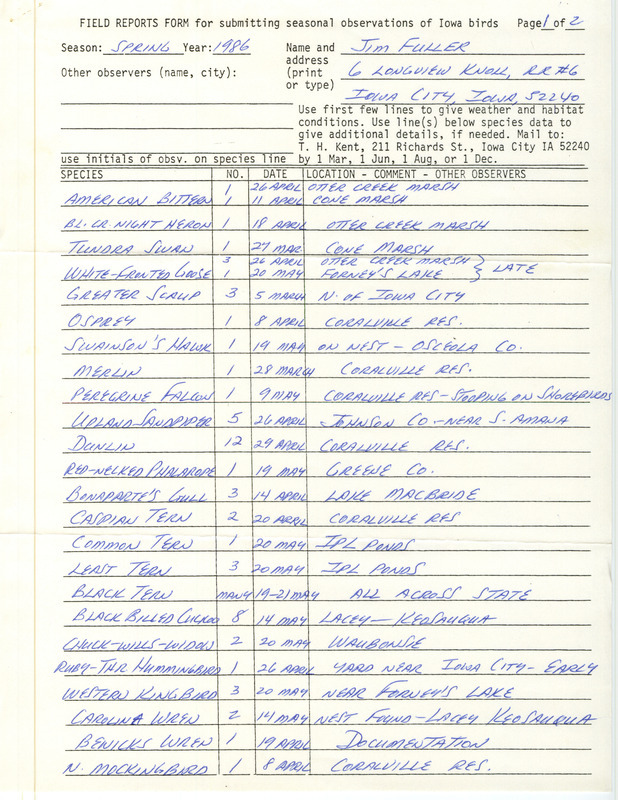 FIELD REPORTS FORM for submitting seasonal observations of Iowa birds Page 1 of 2
Season: SPRING Year: 1986 Name and JIM FULLER
address
Other observers (name, city): (print 6 LONGVIEW KNOLL, RR#6
or type)
IOWA CITY, IOWA, 52240
Use first few lines to give weather and habitat
conditions. Use line(s) below species data to
give additional details, if needed. Mail to:
T. H. Kent, 211 Richards St., Iowa City IA 52240
use initials of obsv. on species line by 1 Mar, 1 Jun, 1 Aug, or 1 Dec.
SPECIES NO. DATE LOCATION - COMMENT - OTHER OBSERVERS
1 26 APRIL OTTER CREEK MARSH
AMERICAN BITTERN 1 11 APRIL CONE MARSH
BL. CR. NIGHT HERON 1 18 APRIL OTTER CREEK MARSH
TUNDRA SWAN 1 27 MAR CONE MARSH
3 26 APRIL OTTER CREEK MARSH
WHITE-FRONTED GOOSE 1 20 MAY FORNEY'S LAKE } LATE
GREATER SCAUP 3 5 MARCH N. OF IOWA CITY
OSPREY 1 8 APRIL CORALVILLE RES.
SWAINSON'S HAWK 1 19 MAY ON NEST - OSCEOLA CO.
MERLIN 1 28 MARCH CORALVILLE RES.
PEREGRINE FALCON 1 9 MAY CORALVILLE RES - STOOPING ON SHOREBIRDS
UPLAND SANDPIPER 5 26 APRIL JOHNSON CO. - NEAR S. AMANA
DUNLIN 12 29 APRIL CORALVILLE RES.
RED-NECKED PHALAROPE 1 19 MAY GREENE CO.
BONAPARTE'S GULL 3 14 APRIL LAKE MACBRIDE
CASPIAN TERN 2 20 APRIL CORALVILLE RES
COMMON TERN 1 20 MAY IPL PONDS
LEAST TERN 3 20 MAY IPL PONDS
BLACK TERN MANY 19-21 MAY ALL ACROSS STATE
BLACK BILLED CUCKOO 8 14 MAY LACEY - KEOSAUQUA
CHUCK-WILLS-WIDOW 2 20 MAY WAUBONSE
RUBY-THR HUMMINGBIRD 1 26 APRIL YARD NEAR IOWA CITY - EARLY
WESTERN KINGBIRD 3 20 MAY NEAR FORNEY'S LAKE
CAROLINA WREN 2 14 MAY NEST FOUND - LACEY KEOSAUQUA
BEWICKS WREN 1 19 APRIL DOCUMENTATION
N. MOCKINGBIRD 1 8 APRIL CORALVILLE RES.